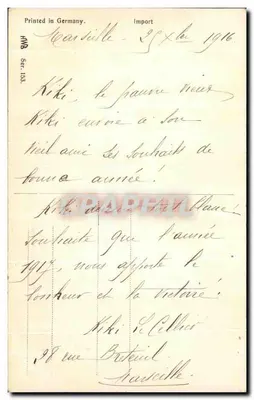 Printed in Germany. Import
AVB
Ser. 153.
Marseille 25 Xbre 1916
Kiki, le pauvre vieux
Kiki envoie à son
vieil ami ses souhaits de
bonne année!
CPAPHIL
Souhaite que l'année
1917, nous apporte le
bonheur et la victoire!
Kiki
38 rue Breteuil
Marseille